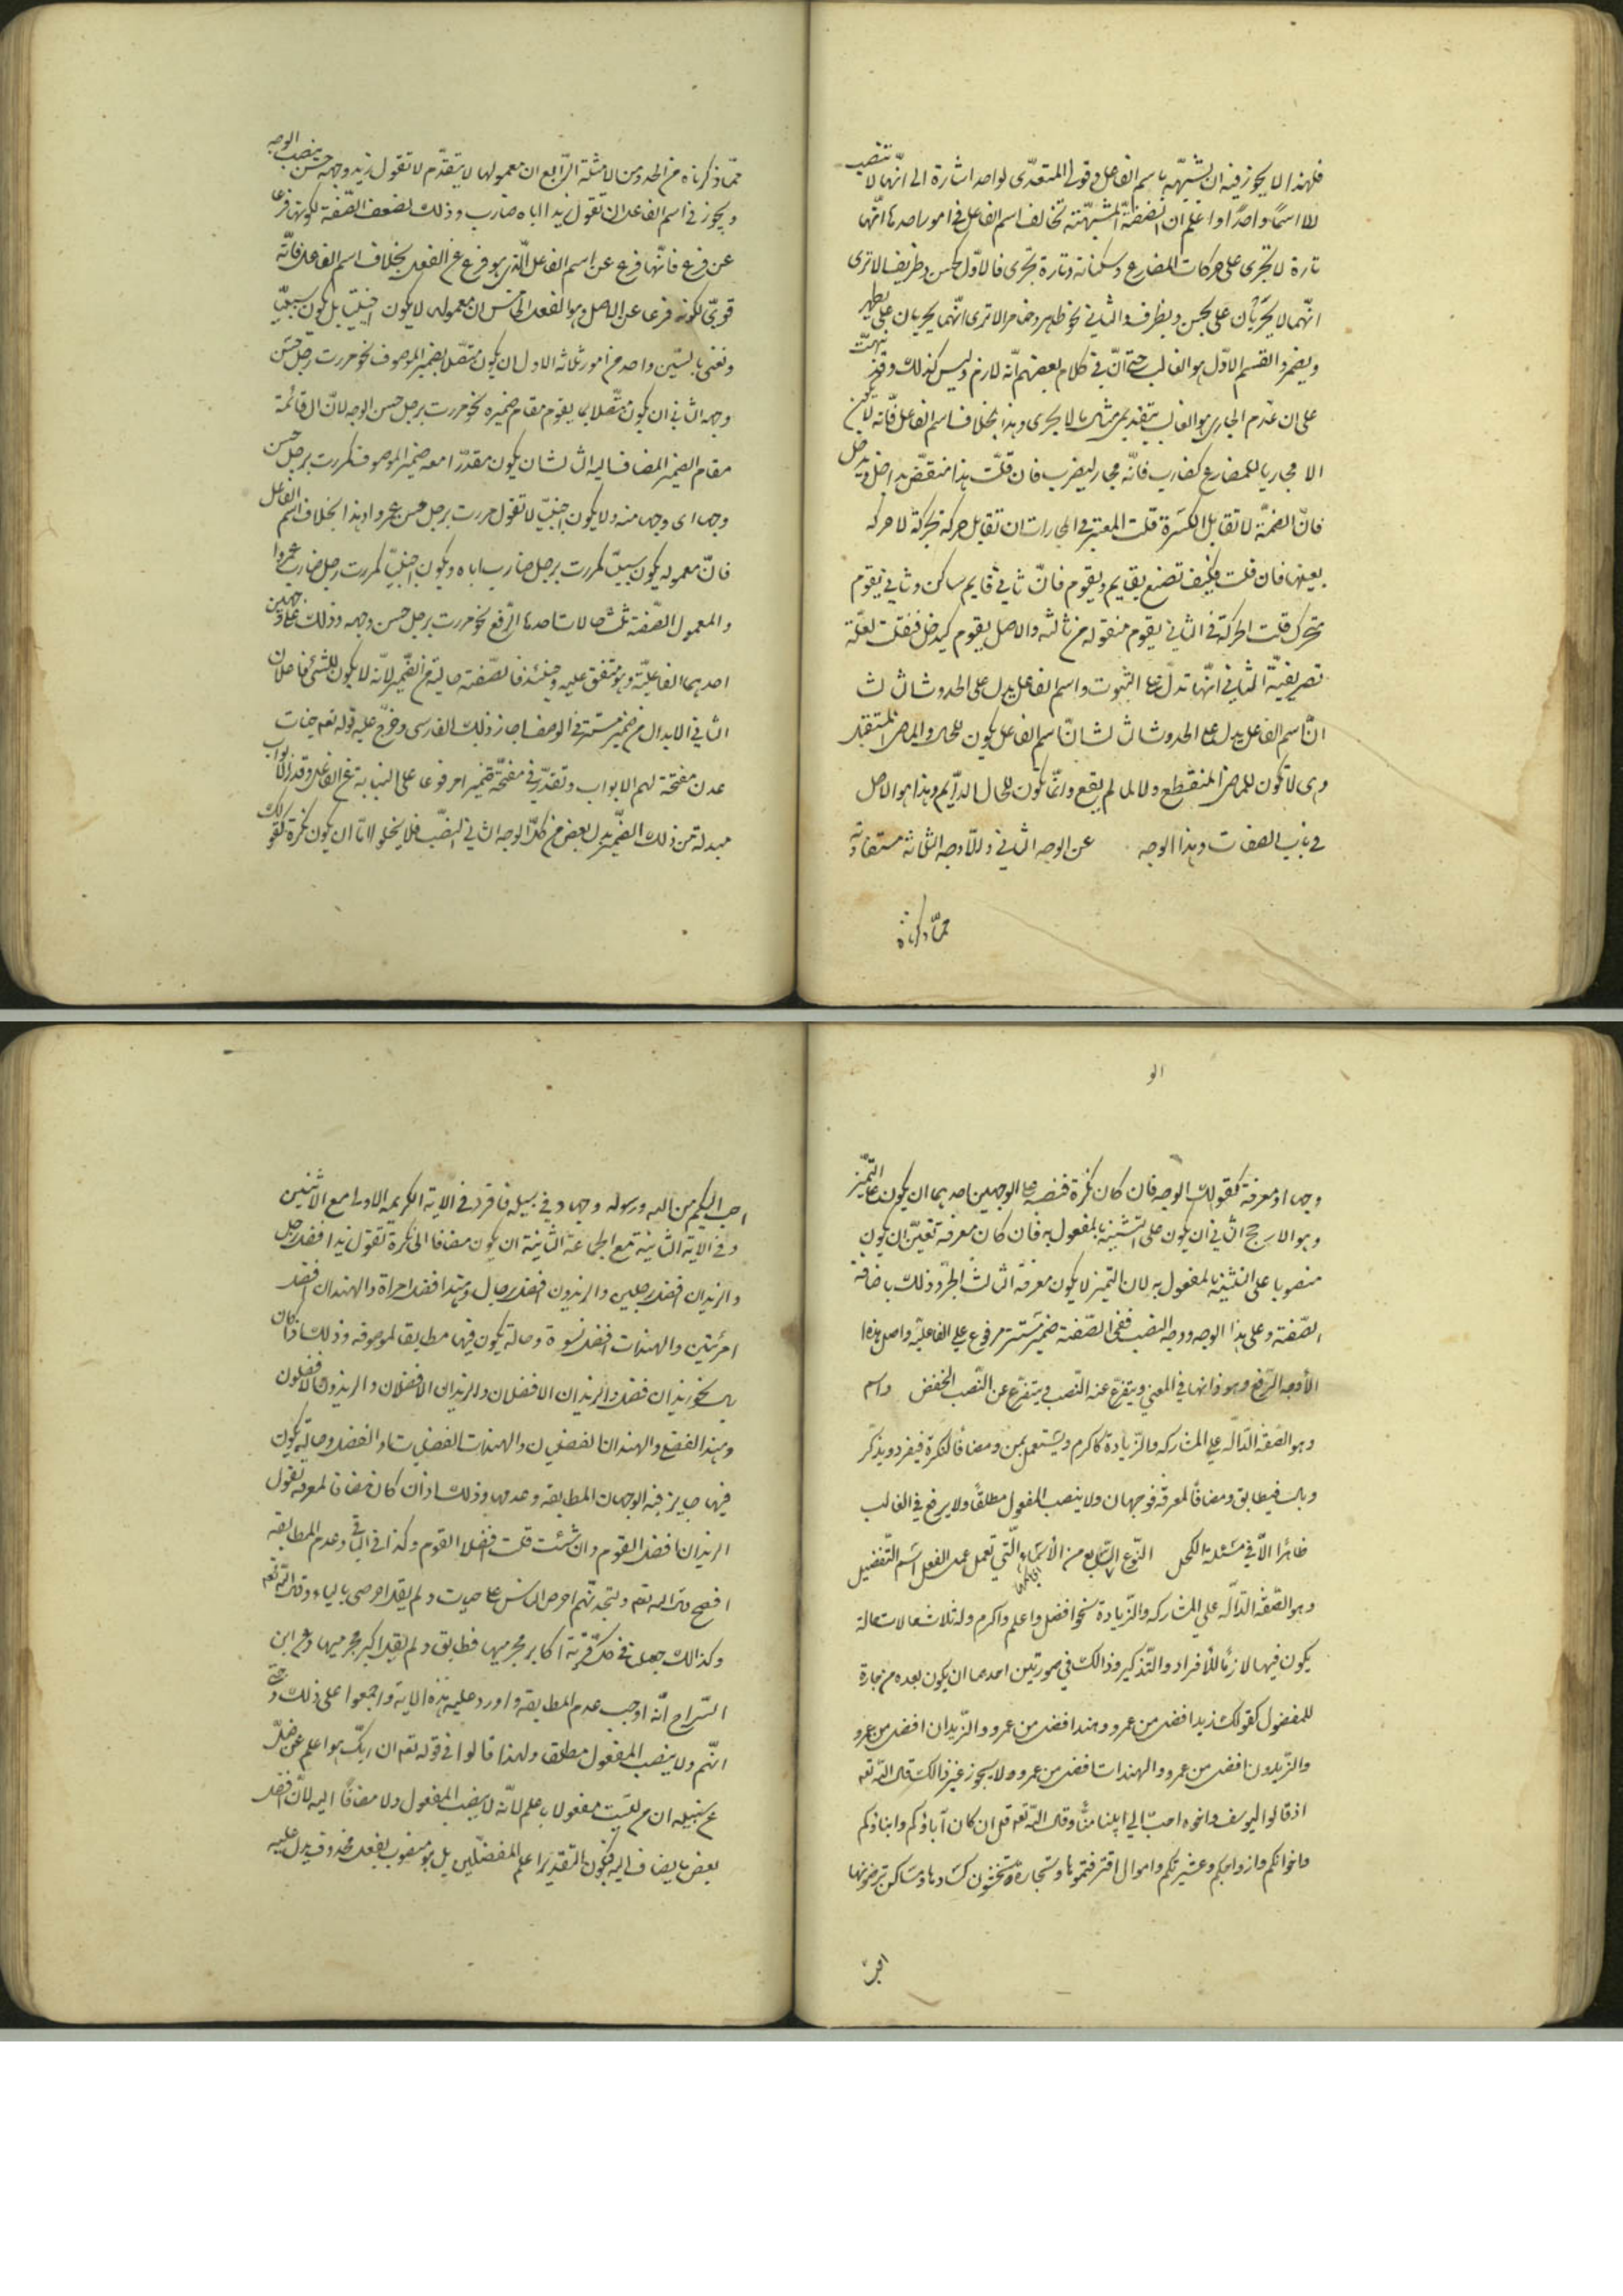 فلهذا لا يجوز فيه ان تشبّهه باسم الفاعل وقولى المتعدّى لواحد اشارة الى انّها لا تنصب
الا اسمًا واحدًا واعلم ان الصّفة المشبّهة تخالف اسم الفاعل فى امور احدها انّها
تارة لا تجرى على حركات المضارع وسكناته وتارة تجرى فالاوّل كحسن وظريف الا ترى
انّهما لا يجريان على يحسن ويظرف والثانى نحو طاهر وضامر الا ترى انّهما يجريان على يطهر
ويضمر والقسم الاوّل هو الغالب حتى انّ فى كلام بعضهم انّه لازم وليس كذلك وقد نبّهت
على ان عدم الجارى هو الغالب بتقديمى مثال ما لا يجرى وهذا بخلاف اسم الفاعل فانّه لا يكون
الا مجاريا للمضارع كضارب فانّه مجار ليضرب فان قلت هذا منتقض بداخل ويدخل
فانّ الضمّة لا تقابل الكسرة قلت المعتبر فى المجارات ان تقابل حركة بحركة لا حركه
بعينها فان قلت فكيف تصنع بقايم ويقوم فانّ ثانى قايم ساكن وثانى يقوم
متحرك قلت الحركة فى الثانى يقوم منقولة من ثالثه والاصل يقوم كيدخل فنقلت لعلّة
تصريفيّة الثانى انّها تدلّ على الثبوت واسم الفاعل يدل على الحدوث الثالث
انّ اسم الفاعل يدل على الحدوث الثالث انّ اسم الفاعل يكون للحال والماضى والمستقبل
وهى لا تكون للماضى المنقطع ولا لما لم يقع وانّما تكون للحال الدّايم وهذا هو الاصل
فى باب الصفات وهذا الوجه عن الوجه الثانى والاوجه الثلاثة مستفادة
ممّا ذكرناه
ممّا ذكرناه من الحد ومن الامثلة الرّابع ان معمولها لا يتقدّم لا تقول زيد وجهه حسن بنصب الوجه
ويجوز فى اسم الفاعل ان تقول زيد اباه ضارب وذلك لضعف الصّفة لكونها فرعا
عن فرع فانّها فرع عن اسم الفاعل الّذى هو فرع عن الفعل بخلاف اسم الفاعل فانّه
قوىّ لكونه فرعا عن الاصل وهو الفعل الخامس ان معموله لا يكون اجنبيّا بل يكون سببيّا
ونعنى بالسببى واحد من امور ثلاثة الاول ان يكون متصلا بضمير الموصوف نحو مررت برجل حسن
وجهه الثانى ان يكون متّصلا بما يقوم مقام ضميره نحو مررت برجل حسن الوجه لانّ ال قائمة
مقام الضمير المضاف اليه الثالث ان يكون مقدّرا معه ضمير الموصوف كمررت برجل حسن
وجها اى وجها منه ولا يكون اجنبيّا لا تقول مررت برجل حسن عمروا وهذا بخلاف اسم الفاعل
فانّ معموله يكون سببيّا كمررت برجل ضارب اباه ويكون اجنبيّا كمررت برجل ضارب عمروا
والمعمول الصّفة ثلث حالات احدها الرّفع نحو مررت برجل حسن وجهه وذلك على وجهين
احدهما الفاعليّة وهو متّفق عليه وحينئذ فالصّفة خالية من الضّمير لانّه لا يكون للشئ فاعلان
الثانى الابدال من ضمير مستتر فى الوصف اجاز ذلك الفارسى وخرّج عليه قوله تعم جنات
عدن مفتحة لهم الابواب وتقدّر فى مفتحة ضميرا مرفوعا على النيابة عن الفاعل وقدر الابواب
مبدلة من ذلك الضّمير بدل بعض من كلّ الوجه الثانى النّصب فلا يخلو امّا ان يكون نكرة كقولك
الو
وجها او معرفة كقولك الوجه فان كان نكرة فنصبه على الوجهين احدهما ان يكون على التّميز
وهو الارجح الثانى ان يكون على التشبيه بالمفعول به فان كان معرفة تعيّن ان يكون
منصوبا على التشبيه بالمفعول به لان التميز لا يكون معرفة الثالث الجرّ وذلك باضافة
الصّفة وعلى هذا الوجه ووجه النصب ففى الصّفة ضمير مستتر مرفوع على الفاعليّة واصل هذه
الأوجه الرّفع وهو ذاتها فى المعنى ويتفرّع عنه النّصب ويتفرّع عن النّصب الخفض واسم
وهو الصّفة الدّالّة على المشاركة والزّيادة كاكرم ويستعمل بمن ومضافا لنكرة فيفرد ويذكر
وبال فيطابق ومضافا لمعرفة فوجهان ولا ينصب المفعول مطلقًا ولا يرفع فى الغالب
ظاهرا الّا فى مسئلة الكحل النّوع السّابع من الأسماء الّتى تعمل عمل الفعل اسم التّفضيل
وهو الصّفة الدّالّة على المشاركة والزّيادة نحو افضل واعلم واكرم وله ثلاث حالات حالة
يكون فيها لازمًا للأفراد والتّذكير وذالك فى صورتين احدهما ان يكون بعده من جارة
للمفضول كقولك زيد افضل من عمرو وهند افضل من عمرو والزّيدان افضل من عمرو
والزّيدون افضل من عمرو والهندات افضل من عمرو ولا يجوز غير ذالك قال اللّه تعم
اذ قالوا ليوسف واخوه احبّ الى ابينا منّا وقال اللّه تعم قل ان كان آباؤكم وابناؤكم
واخوانكم وازواجكم وعشيرتكم واموال اقترفتموها وتجارة تخشون كسادها ومساكن ترضونها
احبّ
احب اليكم من الله ورسوله وجهاد فى سبيله فافرد فى الاية الكريمه الاولى مع الاثنين
وفى الاية الثانية مع الجماعة الثانية ان يكون مضافا الى نكرة تقول زيد افضل رجل
والزيدان افضل رجلين والزيدون افضل رجال وهند افضل امراة والهندان افضل
امرئتين والهندات افضل نسوة وحالة يكون فيها مطابقا لموصوفه وذلك اذا كان
بال نحو زيد الافضل والزيدان الافضلان والزيدون الافضلون
وهند الفضلى والهندان الفضليان والهندات الفضليات او الفضل وحالة يكون
فيها جايز فيه الوجهان المطابقة وعدمها وذلك اذا كان مضافا لمعرفة تقول
الزيدان افضل القوم وان شئت قلت افضلا القوم وكذا فى الباقى وعدم المطابقة
افصح قال الله تعم ولتجدنّهم احرص الناس على حيات ولم يقل احرصى بالياء وقال اللّه تعم
وكذالك جعلنا فى كلّ قرية اكابر مجرميها فطابق ولم يقل اكبر مجرميها وعن ابن
السّراج انّه اوجب عدم المطابقة واورد عليه هذه الاية واجمعوا على ذلك
انّهم ولا ينصب المفعول مطلقا ولهذا قالوا فى قوله تعم ان ربّك هو اعلم من يضلّ
عن سبيله ان من ليست مفعولا باعلم لانّه لا ينصب المفعول ولا مضافًا اليه لانّ افعل
بعض ما يضاف اليه فيكون التقدير اعلم المضلّين بل هو منصوب بفعل محذوف يدل عليه